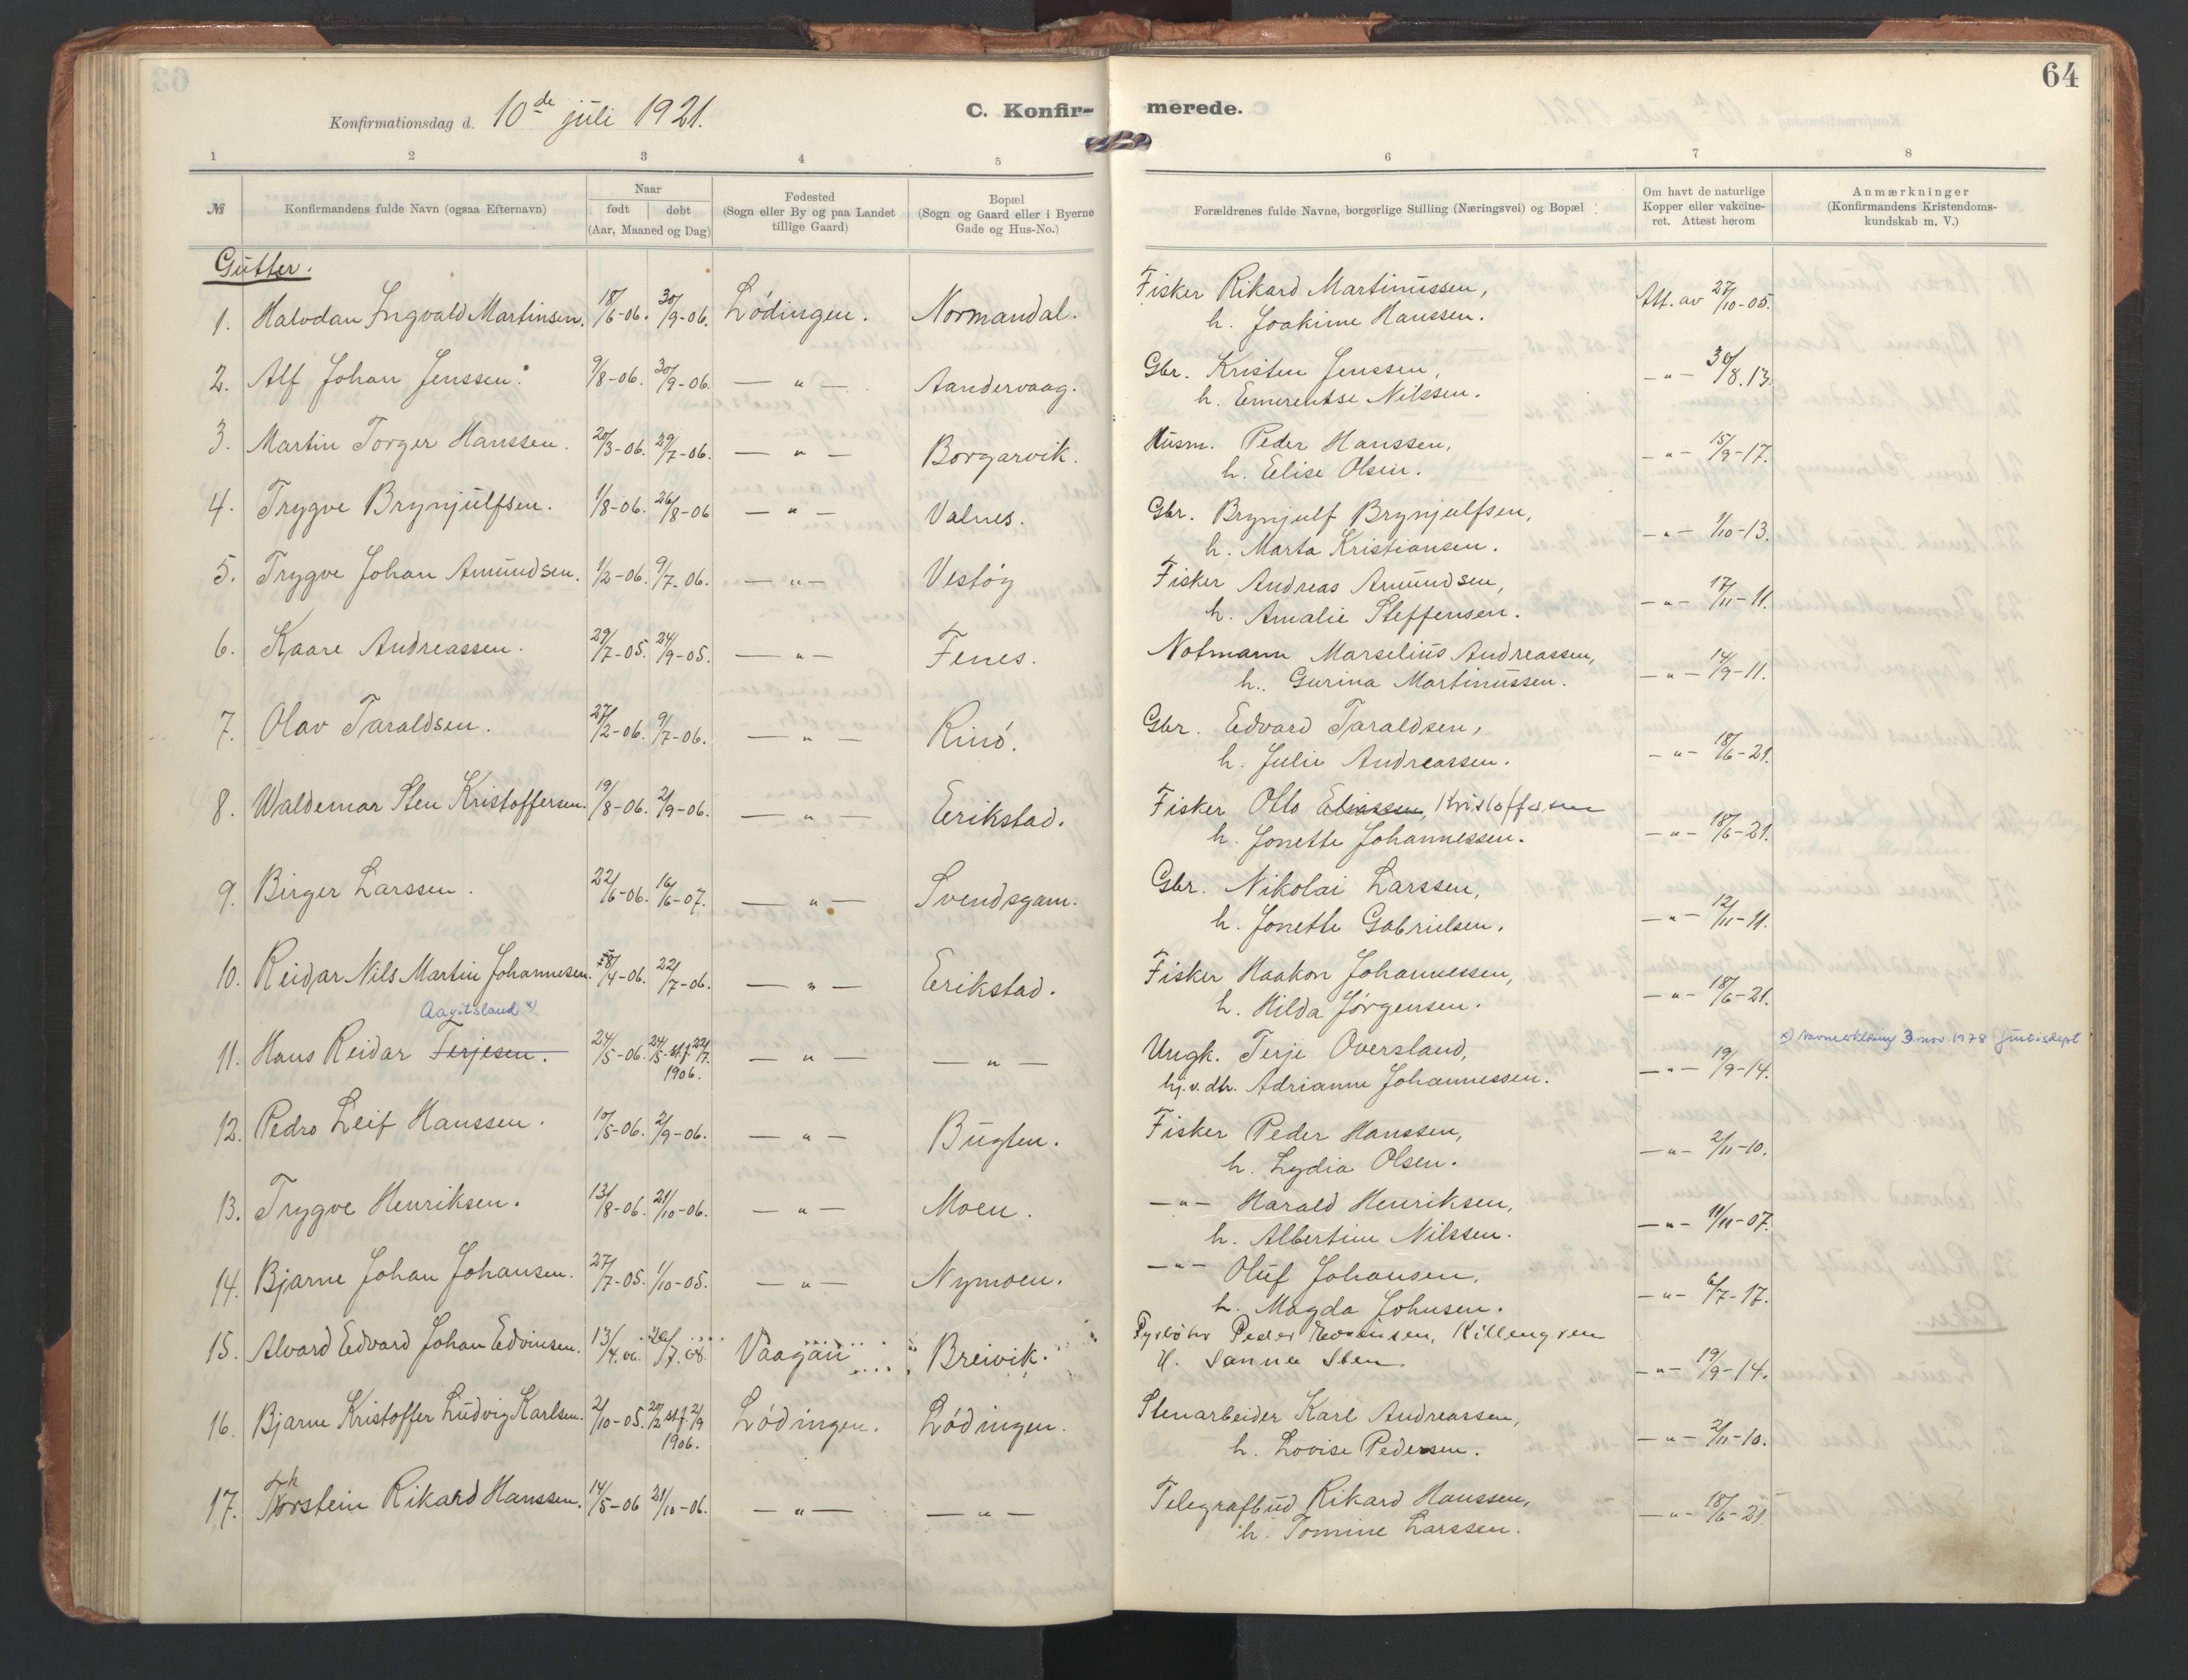 64
Konfirmationsdag d. 10de juli 1921.
C. Konfir-
merede.
1 2 3 4 5 6 7 8
№
Konfirmandens fulde Navn (ogsaa Efternavn)
Naar
født døbt
(Aar, Maaned og Dag)
Fødested
(Sogn eller By og paa Landet
tillige Gaard)
Bopæl
(Sogn og Gaard eller i Byerne
Gade og Hus-No.)
Forældrenes fulde Navne, borgerlige Stilling (Næringsvei) og Bopæl
Om havt de naturlige
Kopper eller vakcine-
ret. Attest herom
Anmærkninger
(Konfirmandens Kristendoms-
kundskab m. V.)
Gutter.
1. Halvdan Ingvald Martinsen. 18/6-06. 30/9-06. Lödingen. Normandal. Fisker Rikard Martinussen, Att. av 27/10-05.
h. Joakime Hanssen.
2. Alf Johan Jenssen. 9/8-06. 30/9-06. — " — Aandervaag. Gbr. Kristen Jenssen, — " — 30/8.13.
h. Emerentse Nilssen.
3. Martin Torger Hanssen. 20/3-06. 29/7-06. — " — Borgarvik. Husm. Peder Hanssen, — " — 15/9-17.
h. Elise Olsen.
4. Trygve Brynjulfsen. 1/8-06. 26/8-06 — " — Valnes. Gbr. Brynjulf Brynjulfsen, — " — 1/10-13.
h. Marta Kristiansen.
5. Trygve Johan Amundsen. 1/2-06. 9/7-06. — " — Vestöy Fisker Andreas Amundsen, — " — 17/11-11.
h. Amalie Steffensen.
6. Kaare Andreassen. 29/7-05. 24/9-05. — " — Fenes. Notmann Marselius Andreassen, — " — 14/9-11.
h. Gurina Martinussen.
7. Olav Taraldsen. 27/2-06. 9/7-06. — " — Rinö. Gbr. Edvard Taraldsen, — " — 18/6-21.
h. Julie Andreassen.
8. Waldemar Sten Kristoffersen. 19/8-06. 2/9-06. — " — Erikstad. Fisker Otto Eliassen, Kristoffersen — " — 18/6-21.
h. Jonette Johannessen.
9. Birger Larssen. 22/6-06. 16/6-07. — " — Svendsgam. Gbr. Nikolai Larssen, — " — 12/11-11.
h. Jonette Gabrielsen.
10. Reidar Nils Martin Johannesen. 8/4-06. 22/7-06. — " — Erikstad. Fisker Haakon Johannessen, — " — 18/6-21.
h. Hilda Jørgensen.
11. Hans Reidar Terjesen. 24/5-06. 24/5-st.f 22/7. — " — — " — Ungk. Terje Oversland, — " — 19/9-14. x) Navneerklæring 3 nov. 1978 Justisdept
1906. hj.v.dtr. Adrianne Johannessen.
12. Pedro Leif Hanssen. 10/5-06. 2/9-06. — " — Bugten. Fisker Peder Hanssen, — " — 2/11-10.
h. Lydia Olsen.
13. Trygve Henriksen. 13/8-06. 21/10-06. — " — Moen. — " — Harald Henriksen, — " — 11/11-07.
h. Albertine Nilssen.
14. Bjarne Johan Johansen. 27/7-05. 1/10-05. — " — Nymoen. — " — Oluf Johansen, — " — 6/7-17.
h. Magda Johnsen.
15. Alvard Edvard Johan Edvinsen. 13/4. 06. Vaagan Breivik. Peder Edvinsen, Killengren — " — 19/9-14.
H. Sanna Sten
16. Bjarne Kristoffer Ludvig Karlsen. 2/10-05. st.f. 2/9 Lödingen. Lödingen. Stenarbeider Karl Andreassen, — " — 2/11-10.
1906. h. Lovise Pedersen.
17. Thorstein Rikard Hanssen. 14/5-06 21/10-06. — " — — " — Telegrafbud Rikard Hanssen, — " — 18/6-21.
h. Tomine Larssen.